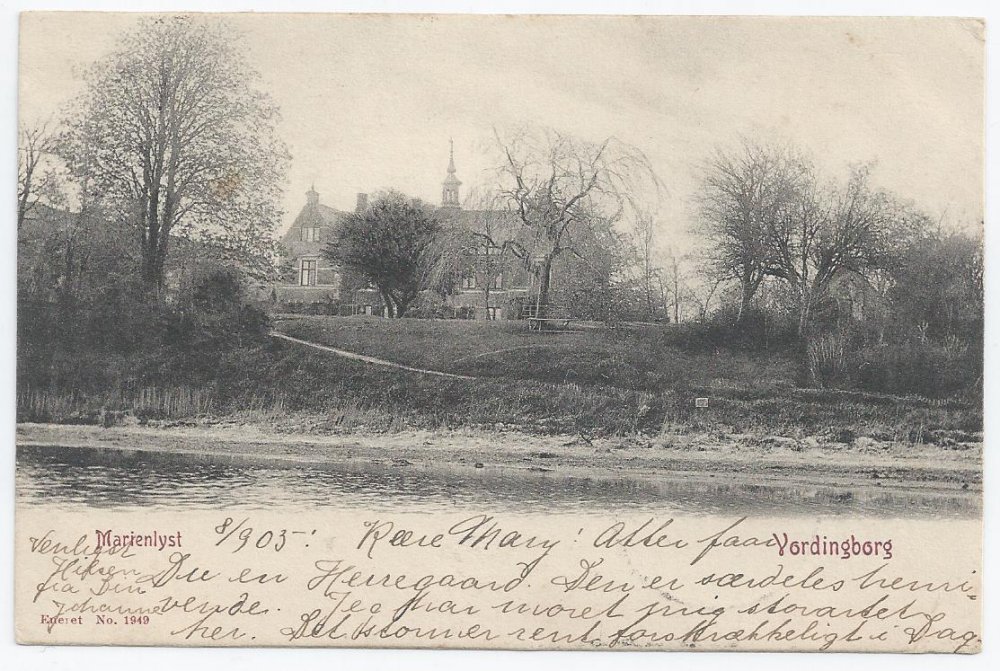 Marienlyst
Vordingborg
8/9 05. Kære Mary! Atter faar
Du en Herregaard. Den er særdeles henri-
vende. Jeg har moret mig storartet
her. Det stormer rent forskrækkeligt i Dag.
Venligst
Hilsen
fra Din
Johanne
Eneret No. 1949